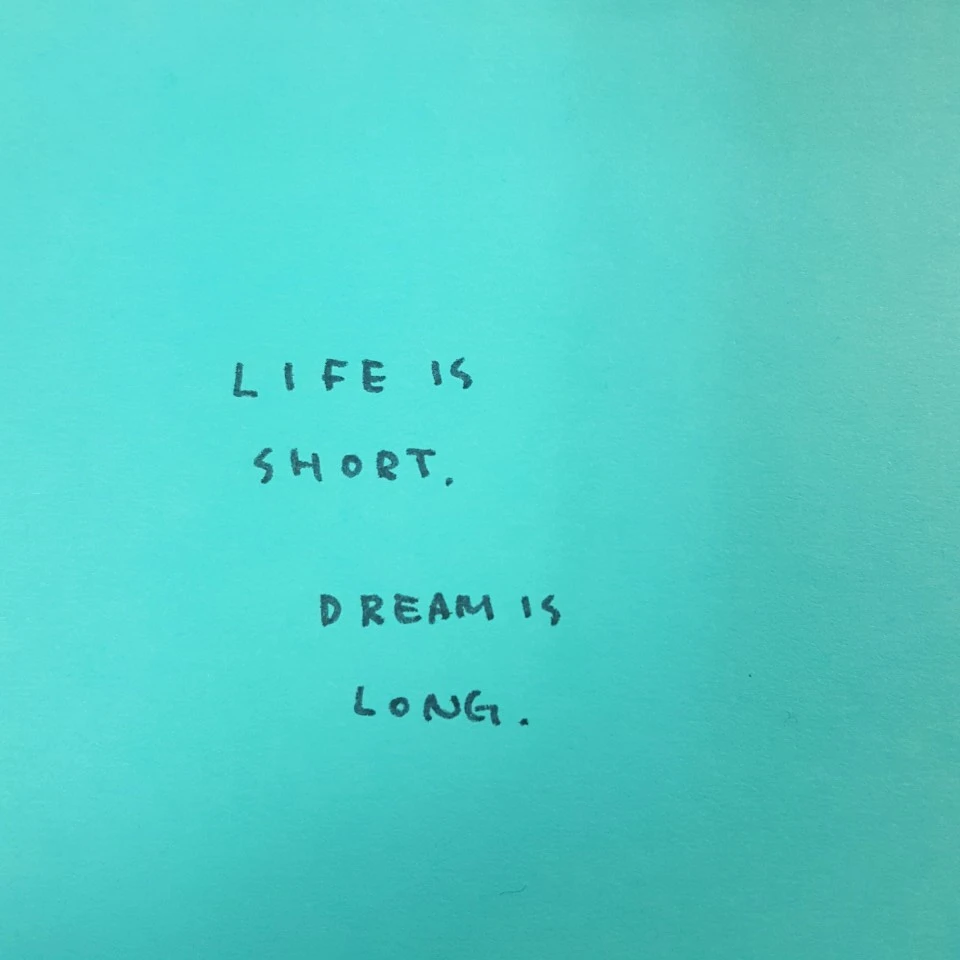 LIFE IS
SHORT.
DREAM IS
LONG.